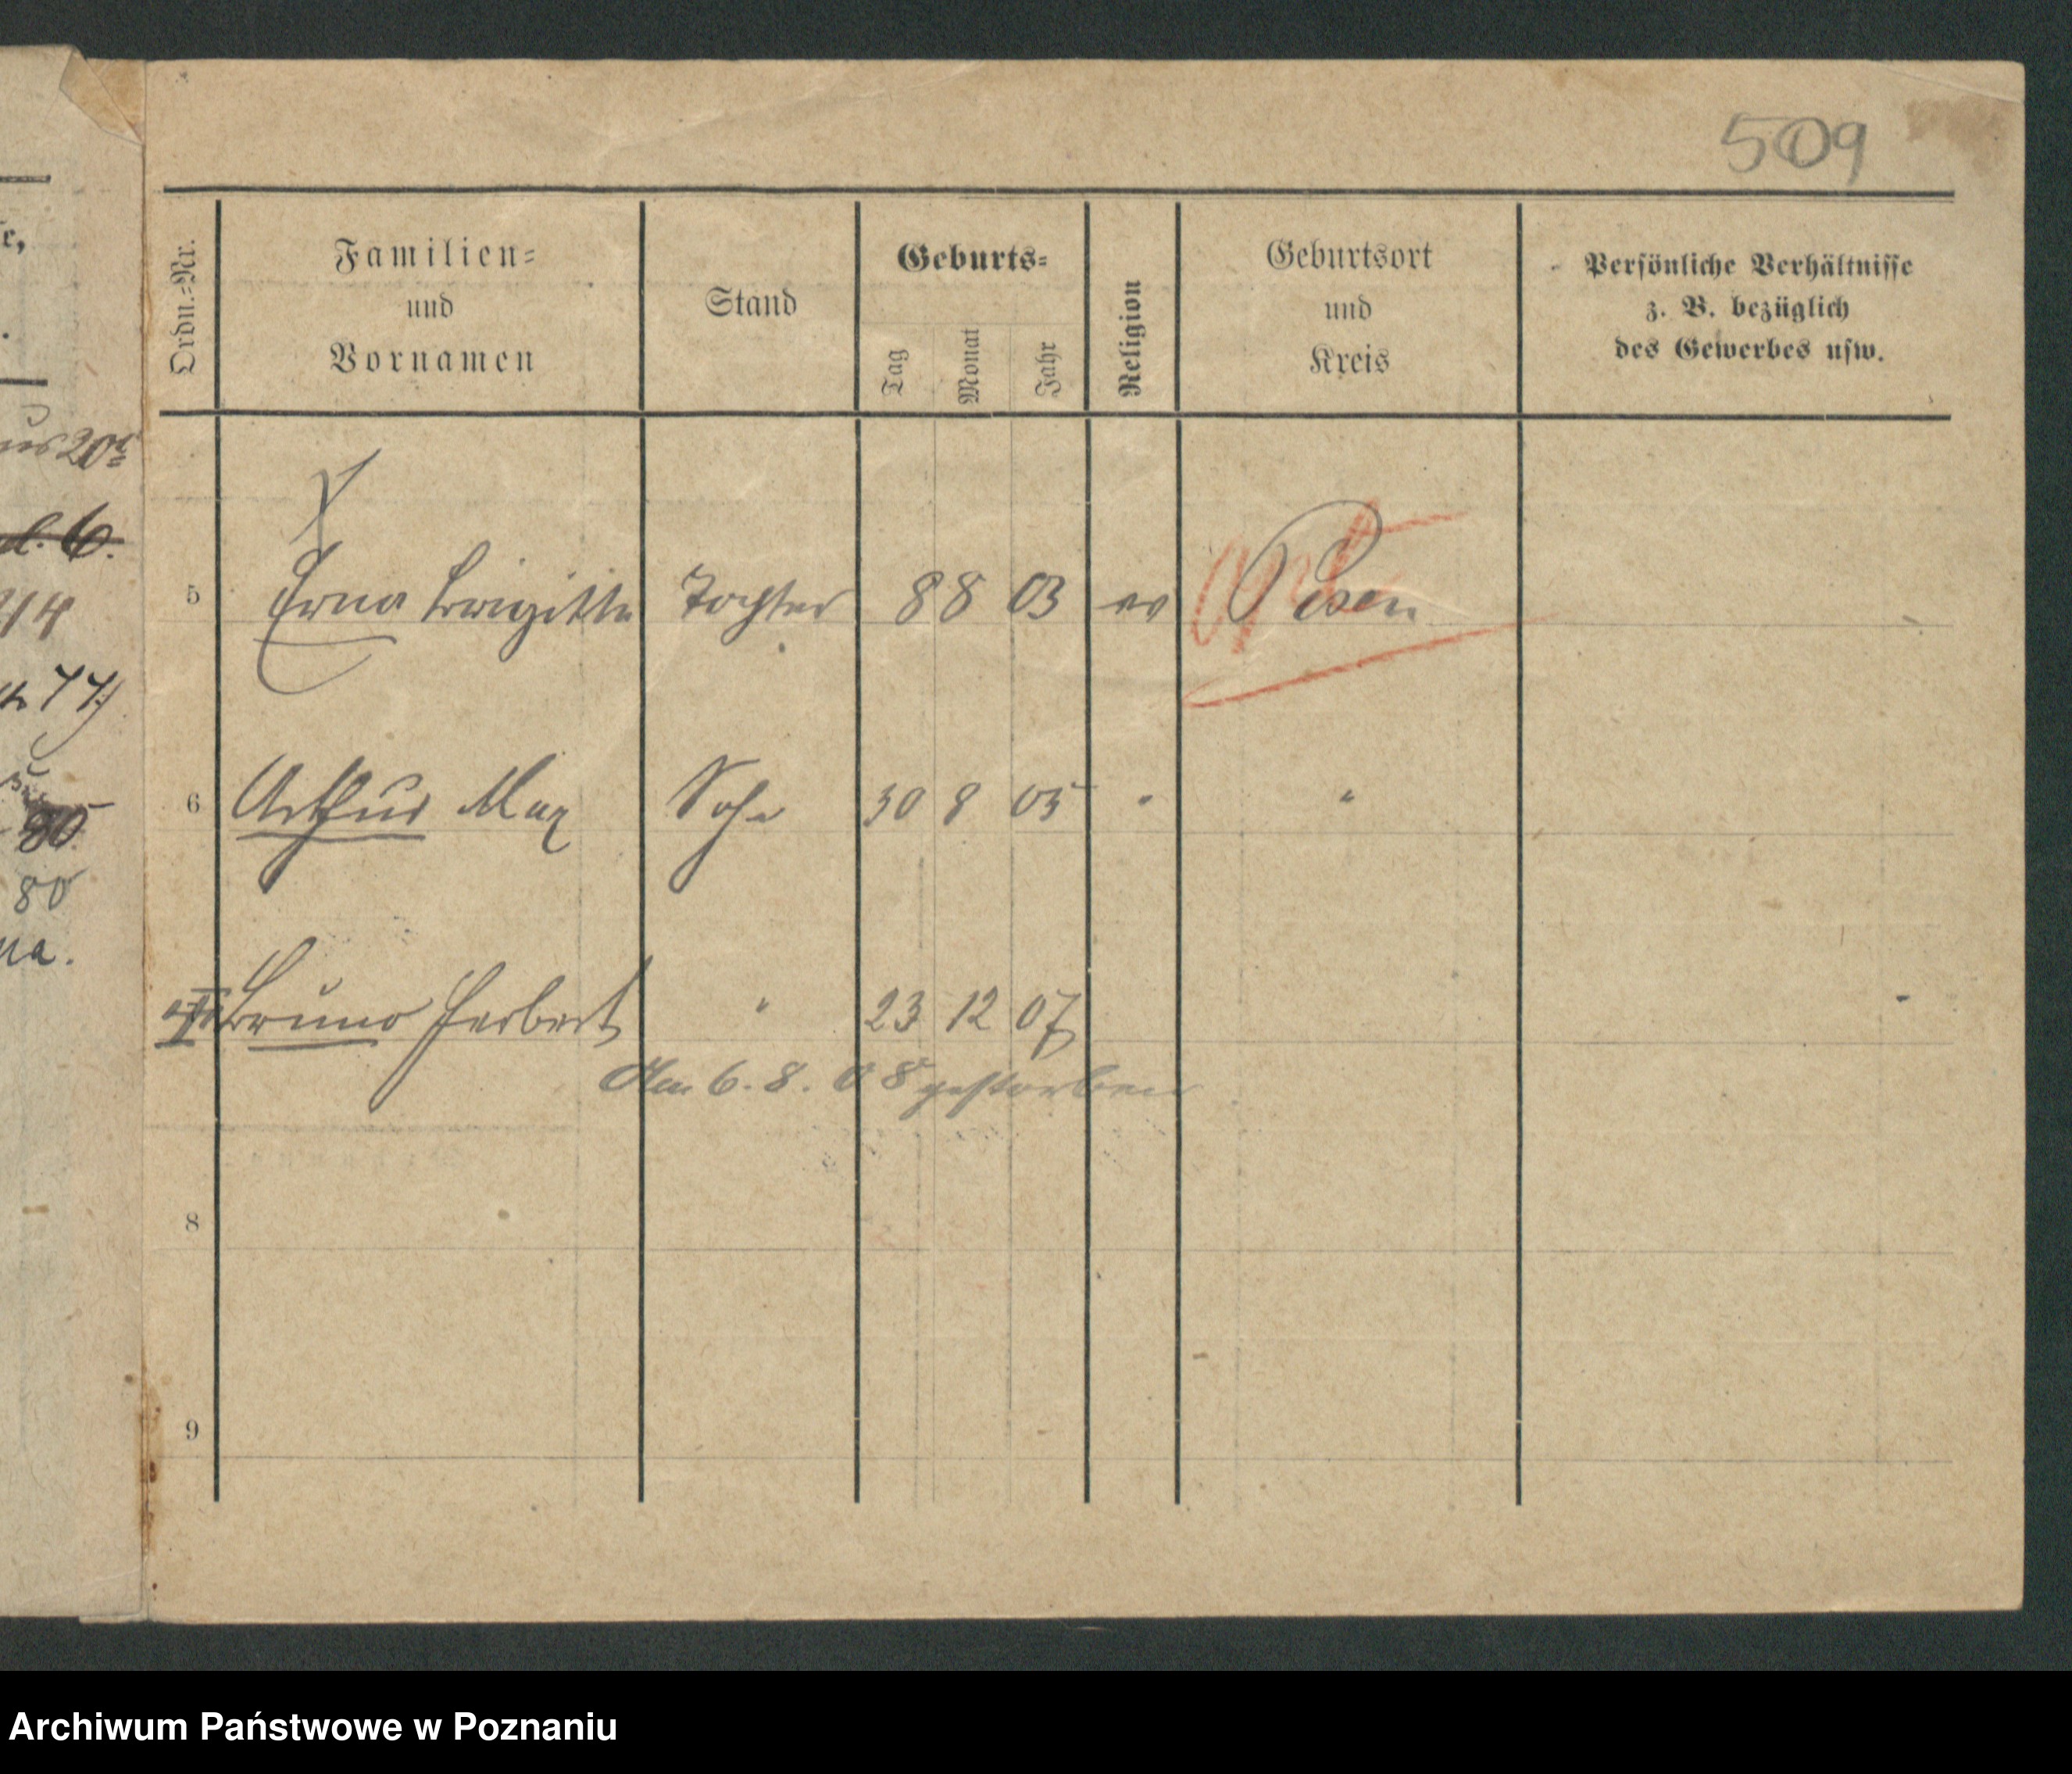 509
Ordn.-Nr.
Familien-
und
Vornamen
Stand
Geburts-
Tag
Monat
Jahr
Religion
Geburtsort
und
Kreis
Persönliche Verhältnisse
z. B. bezüglich
des Gewerbes usw.
5 Erna Brigitte Tochter 8 8 03 ev Posen
6 Arthur Max Sohn 30 8 05 " "
Bruno Herbert " 23 12 07
Am 6. 8. 08 gestorben
8
9
l. 6.
80
80
Archiwum Państwowe w Poznaniu